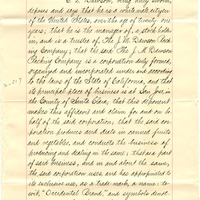 E. L. Dawson, being duly sworn,
deposes and says that he is a white male citizen
of the United States, over the age of twenty-one
years; that he is the manager of, a stockholder
in, and is a Director of, The J. M. Dawson Pack-
ing Company; that the said The J. M. Dawson
Packing Company is a corporation duly formed,
organized and incorporated under and according
to the laws of the State of California, and that
its principal place of business is at San Jose, in
the County of Santa Clara; that this deponent
makes this affidavit and claim for and on be-
half of the said corporation; that the said cor-
poration produces and deals in canned fruits
and vegetables, and conducts the business of
producing and dealing in the same; that as a part
of said business, and in and about the same,
the said corporation uses and has appropriated to
its exclusive use, as a trade-mark, a name: to-
wit, "Occidental Brand," and symbols